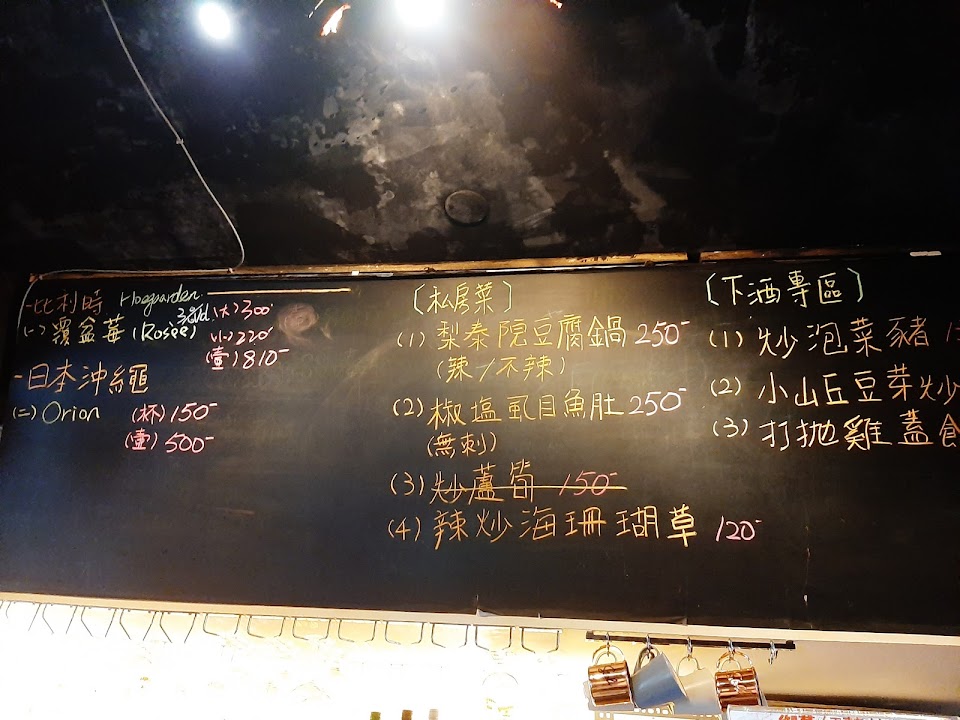 -比利時 Hoegaarden
(一) 覆盆莓 (Rosée) (大) 300-
(小) 220-
(壺) 810-
-日本沖繩
(二) Orion (杯) 150-
(壺) 500-
〔私房菜〕
(1) 梨泰院豆腐鍋 250-
(辣/不辣)
(2) 椒塩虱目魚肚 250-
(無刺)
(3) 炒蘆筍 150-
(4) 辣炒海珊瑚草 120-
〔下酒專區〕
(1) 炒泡菜豬
(2) 小山丘豆芽炒
(3) 打拋雞蓋食